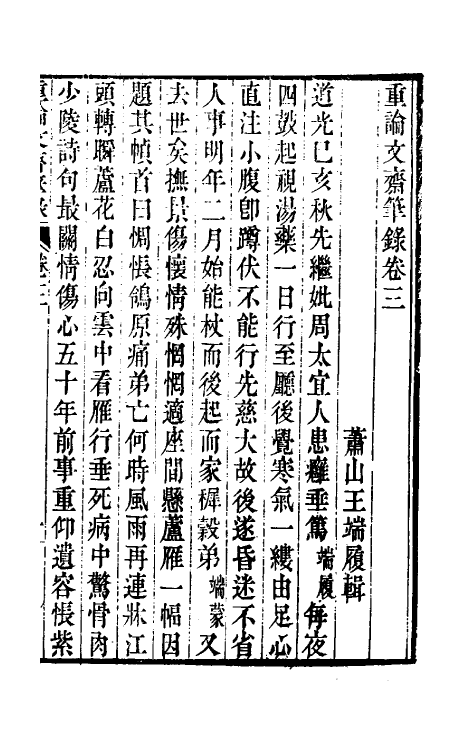 重論文齋筆錄卷三
蕭山王端履輯
道光己亥秋先繼妣周太宜人患癰垂篤端履每夜
四鼓起視湯藥一日行至廳後覺寒氣一縷由足心
直注小腹卽蹲伏不能行先慈大故後遂昏迷不省
人事明年二月始能杖而後起而家穉穀弟端蒙又
去世矣撫景傷懷情殊惘惘適座間懸蘆雁一幅因
題其幀首曰惆悵鴒原痛弟亡何時風雨再連牀江
頭轉瞬蘆花白忍向雲中看雁行垂死病中驚骨肉
少陵詩句最關情傷心五十年前事重仰遺容悵紫
重論文齋筆錄 卷三